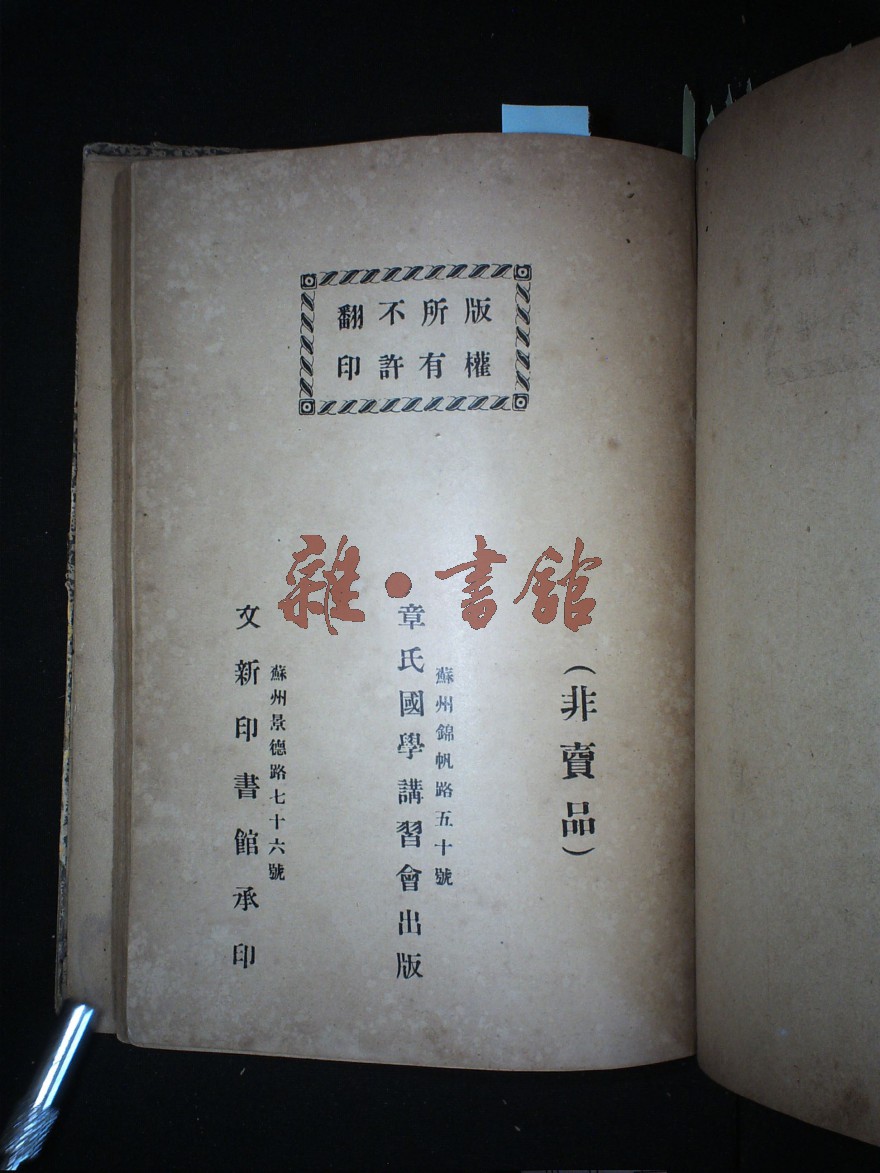 版權
所有
不許
翻印
雜·書館
（非賣品）
蘇州錦帆路五十號
章氏國學講習會出版
蘇州景德路七十六號
文新印書館承印